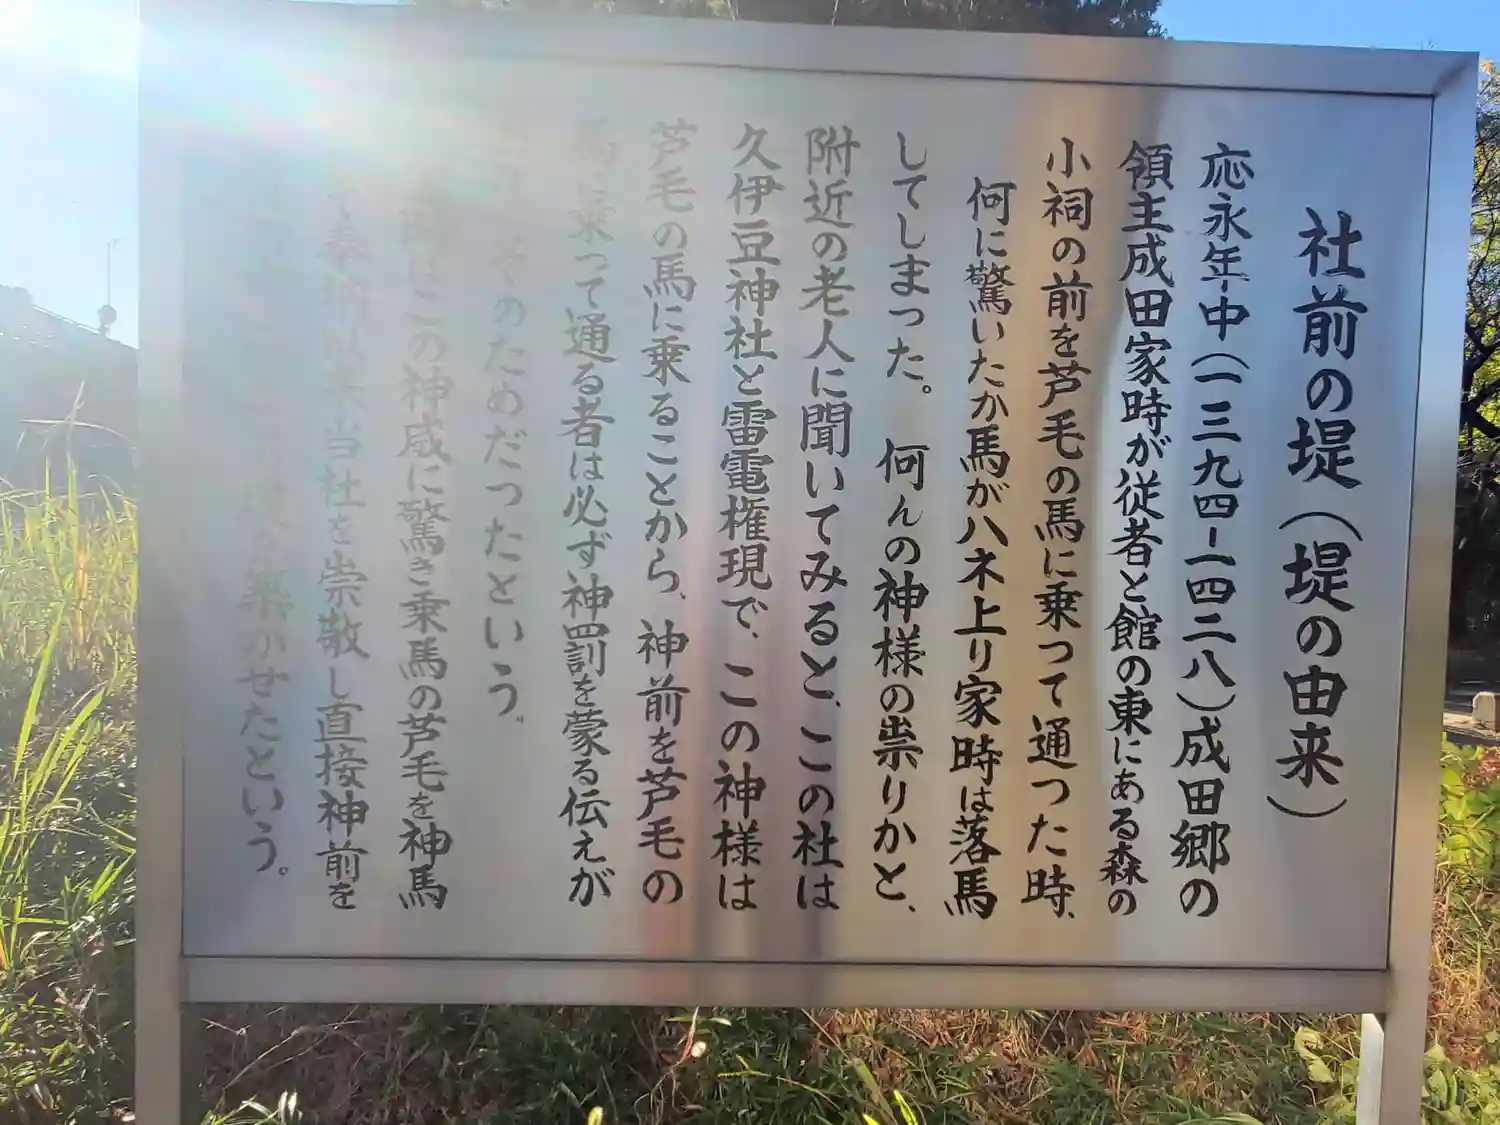 社前の堤（堤の由来）
応永年中（一三九四－一四二八）成田郷の
領主成田家時が従者と館の東にある森の
小祠の前を芦毛の馬に乗つて通つた時、
何に驚いたか馬がハネ上り家時は落馬
してしまった。何んの神様の祟りかと、
附近の老人に聞いてみると、この社は
久伊豆神社と雷電権現で、この神様は
芦毛の馬に乗ることから、神前を芦毛の
馬に乗って通る者は必ず神罰を蒙る伝えが
そのためだったという。
はこの神威に驚き乗馬の芦毛を神馬
て奉納以来当社を崇敬し直接神前を
築かせたという。